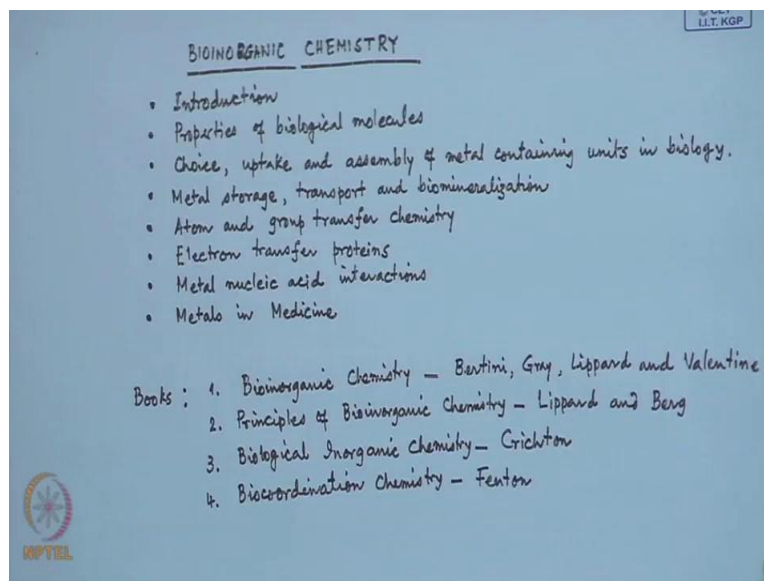 © CET
I.I.T. KGP
BIOINORGANIC CHEMISTRY
• Introduction
• Properties of biological molecules
• Choice, uptake and assembly of metal containing units in biology.
• Metal storage, transport and biomineralization
• Atom and group transfer chemistry
• Electron transfer proteins
• Metal nucleic acid interactions
• Metals in Medicine
Books : 1. Bioinorganic Chemistry – Bertini, Gray, Lippard and Valentine
2. Principles of Bioinorganic Chemistry – Lippard and Berg
3. Biological Inorganic Chemistry – Crichton
4. Biocoordination Chemistry – Fenton
NPTEL